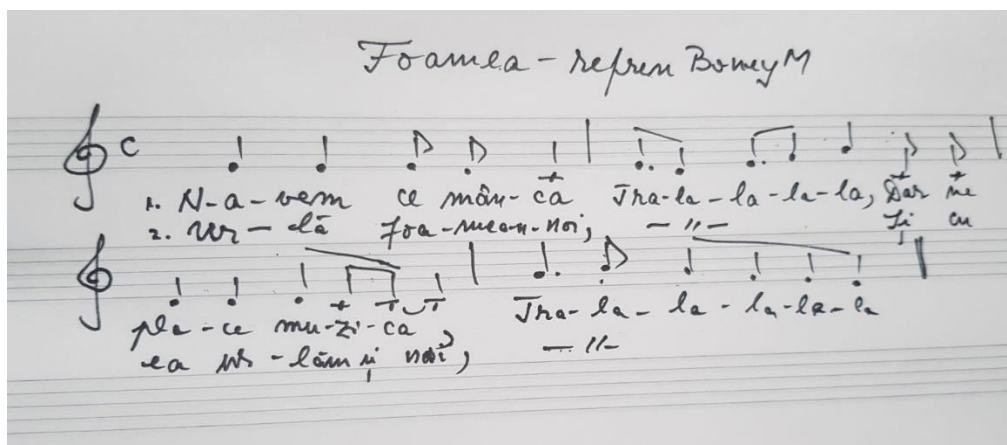 Foamea - refren BoneyM
C
1. N-a-vem ce mân-ca Tra-la-la-la-la, Dar ne
2. Ur-lă foa-mea-n-noi, -"- Și cu
pla-ce mu-zi-ca Tra-la-la-la-la-la
ea ur-lăm și noi, -"-